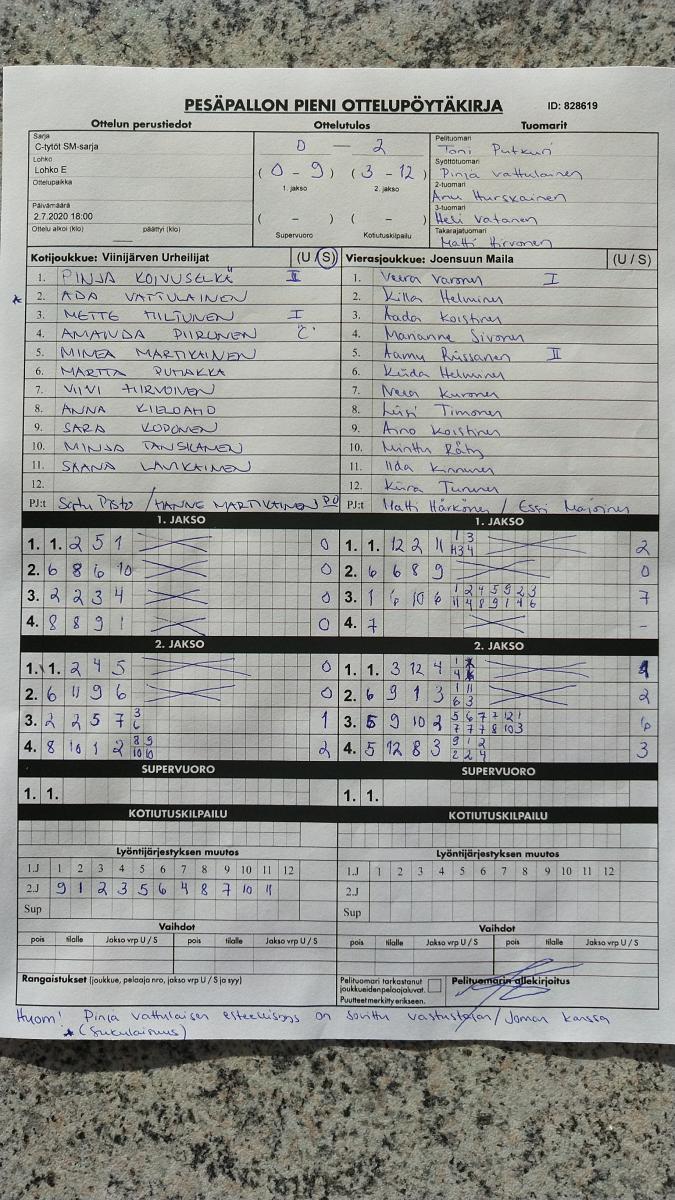 PESÄPALLON PIENI OTTELUPÖYTÄKIRJA ID: 828619
Ottelun perustiedot Ottelutulos Tuomarit
Sarja
C-tytöt SM-sarja
Lohko
Lohko E
Ottelupaikka
Päivämäärä
2.7.2020 18:00
Ottelu alkoi (klo) päättyi (klo)
0 — 2
( 0 - 9 ) ( 3 - 12 )
1. jakso 2. jakso
( - ) ( - )
Supervuoro Kotiutuskilpailu
Pelituomari
Toni Putkuri
Syöttötuomari
Pinja Vattulainen
2-tuomari
Anu Hurskainen
3-tuomari
Heli Vatanen
Takarajatuomari
Matti Hirvonen
Kotijoukkue: Viinijärven Urheilijat (U / S)
1. PINJA KOIVUSELKÄ II
* 2. ADA VATTULAINEN
3. METTE TILTUNEN I
4. AMANDA PIIRONEN "C"
5. MINEA MARTIKAINEN
6. MARTTA PUHAKKA
7. VIIVI HIRVOINEN
8. ANNA KIELOAHO
9. SARA KOPONEN
10. MINJA TANSKANEN
11. SAANA LAVIKAINEN
12.
PJ:t / HANNE MARTIKAINEN PO
Vierasjoukkue: Joensuun Maila (U / S)
1. Veera Varonen I
2. Killa Helminen
3. Aada Koistinen
4. Marianne Sivonen
5. Aamu Riissanen II
6. Kiida Helminen
7. Neea Kuronen
8. Liisi Timonen
9. Aino Koistinen
10. Minttu Räty
11. Iida Kinnunen
12. Kiira Turunen
PJ:t Matti Härkönen / Essi
1. JAKSO
1. 1. 2 5 1 0
2. 6 8 6 10 0
3. 2 2 3 4 0
4. 8 8 9 1 0
2. JAKSO
1. 1. 2 4 5 0
2. 6 11 9 6 0
3. 2 2 5 7 3 1
6
4. 8 10 1 2 8 9 2
10 10
SUPERVUORO
1. 1.
KOTIUTUSKILPAILU
Lyöntijärjestyksen muutos
1.J 1 2 3 4 5 6 7 8 9 10 11 12
2.J 9 1 2 3 5 6 4 8 7 10 11
Sup
Vaihdot
pois tilalle Jakso vrp U / S pois tilalle Jakso vrp U / S
1. JAKSO
1. 1. 12 2 11 1 3 2
4 3 4
2. 6 6 8 9 0
3. 1 6 10 6 1 2 4 5 9 2 3 7
11 4 8 9 1 4 6
4. 7 -
2. JAKSO
1. 1. 3 12 4 1 1
4
2. 6 9 1 3 1 11 2
6 3
3. 5 9 10 2 5 6 7 7 12 1 6
7 7 7 8 10 3
4. 5 12 8 3 9 1 2 3
2 2 4
SUPERVUORO
1. 1.
KOTIUTUSKILPAILU
Lyöntijärjestyksen muutos
1.J 1 2 3 4 5 6 7 8 9 10 11 12
2.J
Sup
Vaihdot
pois tilalle Jakso vrp U / S pois tilalle Jakso vrp U / S
Rangaistukset (joukkue, pelaaja nro, jakso vrp U / S ja syy)
Pelituomari tarkastanut
joukkueiden pelaajaluvat.
Puutteet merkitty erikseen.
Pelituomarin allekirjoitus
Huom! Pinja Vattulaisen esteellisyys on sovittu vastustajan / Joman kanssa
* (sukulaisuus)